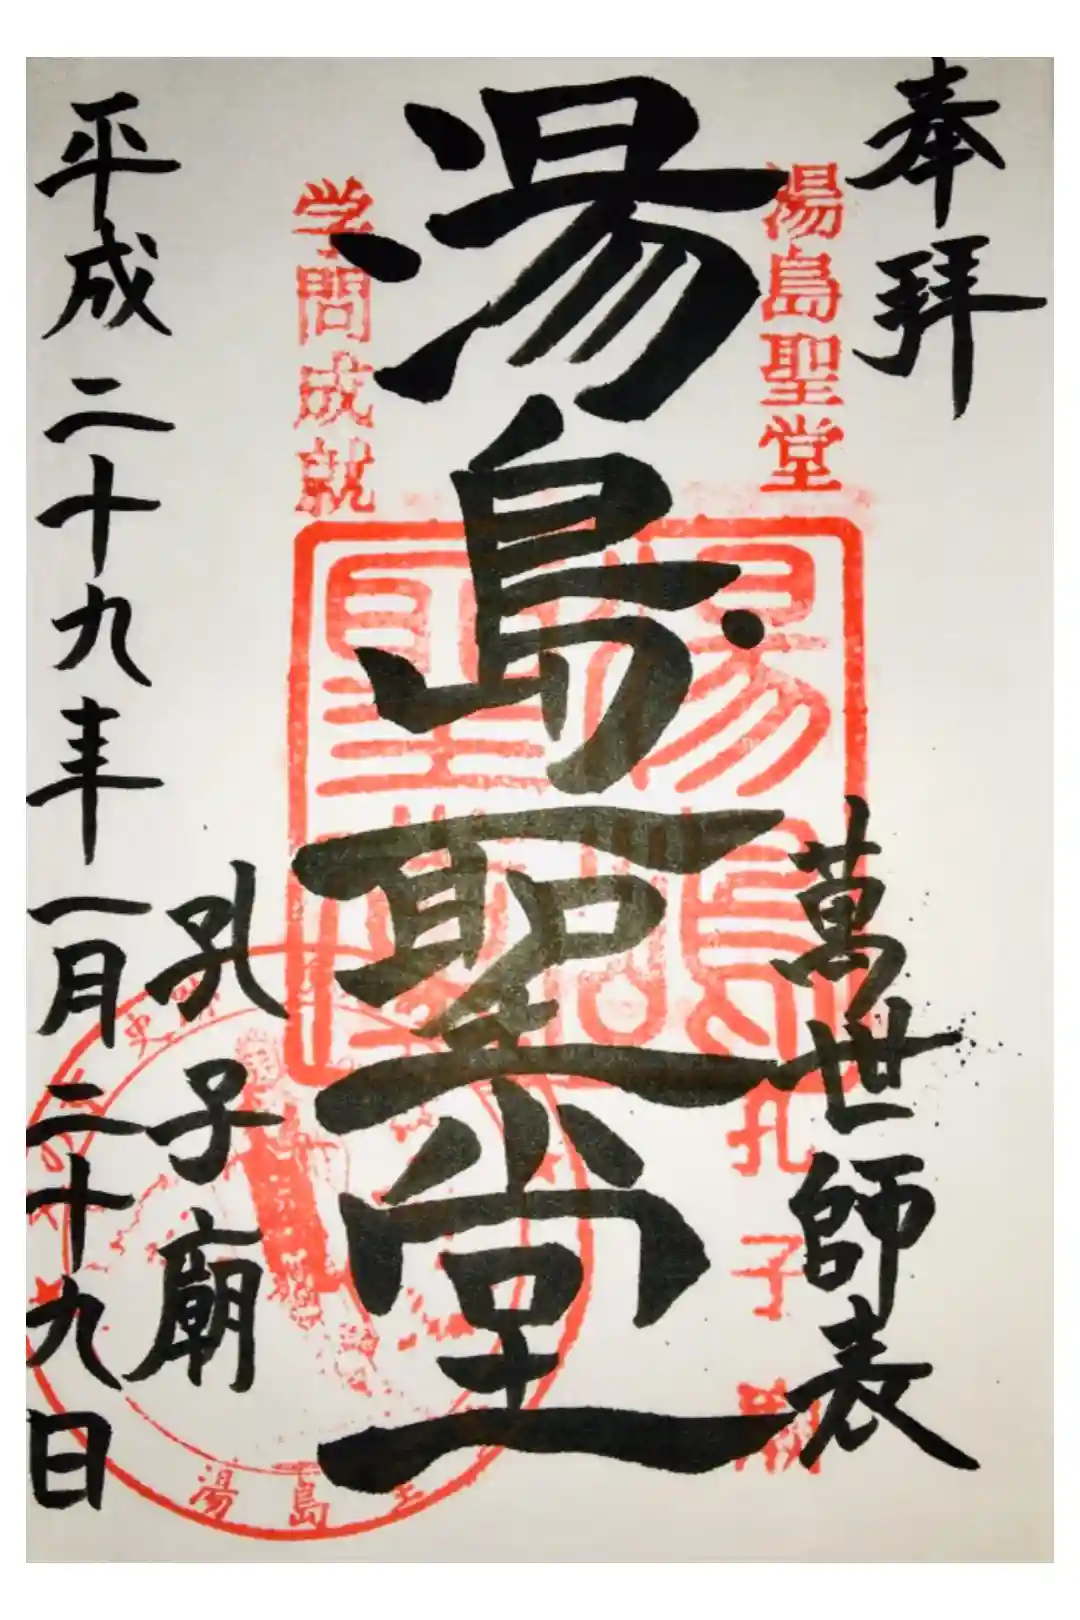 奉拝
萬世師表
湯島聖堂
孔子廟
湯島聖堂
湯島聖堂
学問成就
孔子廟
平成二十九年一月二十九日
史
湯島